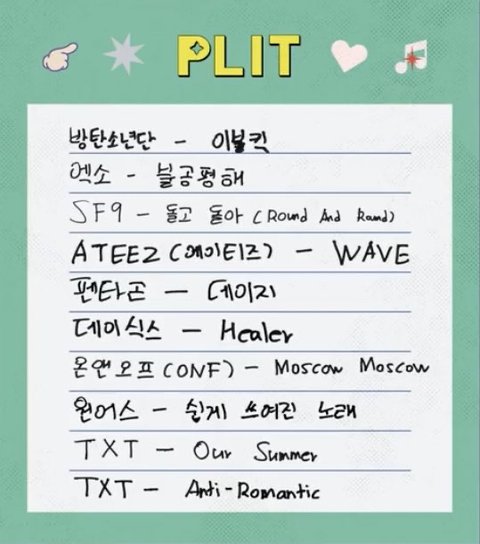 PLIT
방탄소년단 - 이불킥
엑소 - 불공평해
SF9 - 돌고 돌아 (Round And Round)
ATEEZ (에이티즈) - WAVE
펜타곤 - 데이지
데이식스 - Healer
온앤오프 (ONF) - Moscow Moscow
원어스 - 쉽게 쓰여진 노래
TXT - Our Summer
TXT - Anti-Romantic